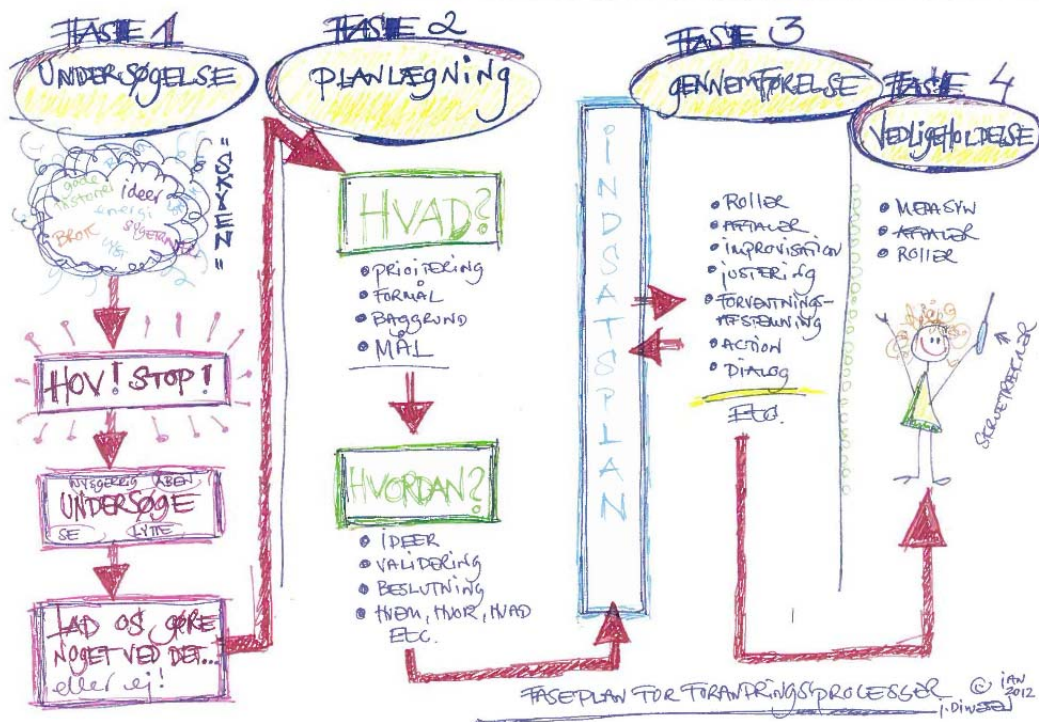 FASE 1
UNDERSØGELSE
"SKYEN"
gode
historier
ideer
energi
BROK
HOV! STOP!
NYSGERRIG ÅBEN
UNDERSØGE
SE LYTTE
LAD OS GØRE
NOGET VED DET...
eller ej!
FASE 2
PLANLÆGNING
HVAD?
PRIORITERING
FORMÅL
BAGGRUND
MÅL
HVORDAN?
IDEER
VALIDERING
BESLUTNING
HVEM, HVOR, HVAD
ETC.
INDSATSPLAN
FASE 3
GENNEMFØRELSE
ROLLER
AFTALER
IMPROVISATION
JUSTERING
FORVENTNINGS-
AFSTEMNING
ACTION
DIALOG
ETC.
FASE 4
VEDLIGEHOLDELSE
METASYN
AFTALER
ROLLER
SKRUETRÆKKER
FASEPLAN FOR FORANDRINGSPROCESSER
© JAN 2012